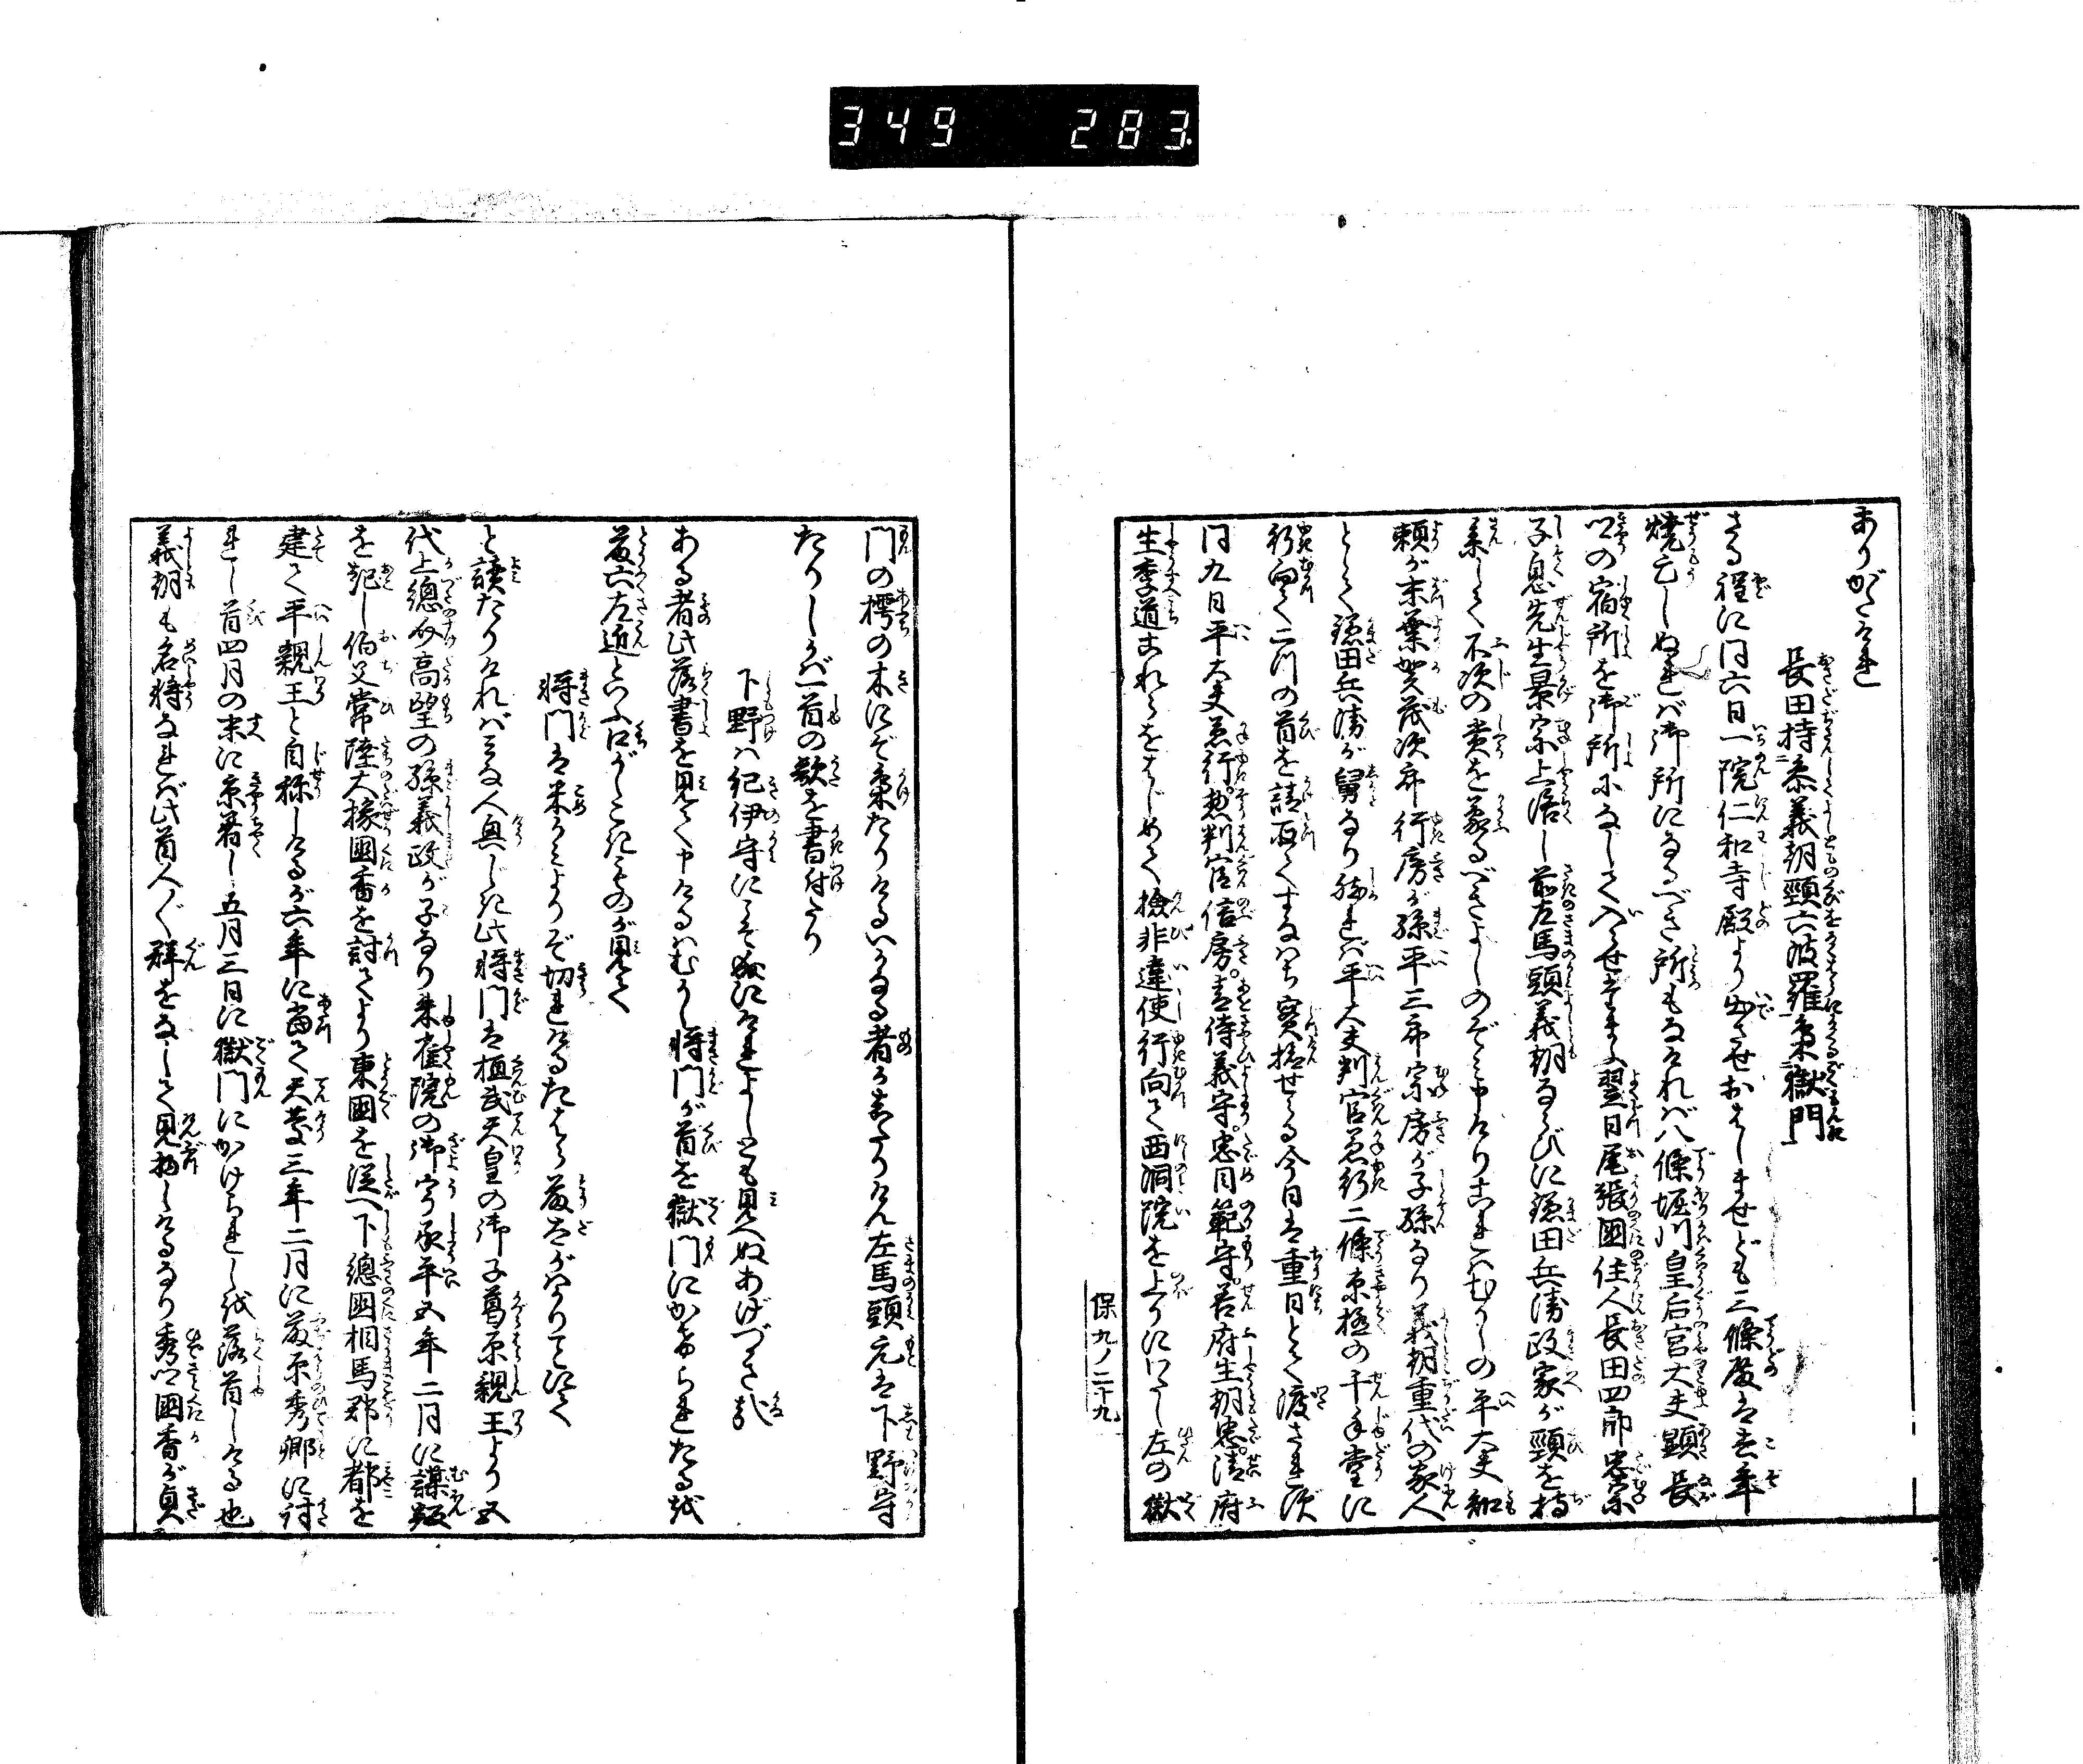 349 283
ありがたけれ
長田持参義朝頸六波羅梟獄門
さる程に同六日一院仁和寺殿より出させおはしませども三條殿は去年
焼亡しぬれば御所になるべき所もなければ八條堀川皇后宮大夫顕長
卿の宿所を御所になして入らせ給ふ翌日尾張國住人長田四郎忠宗
子息先生景宗上洛し前左馬頭義朝ならびに鎌田兵衛政家が頸を持
参して不次の賞を蒙るべきよしのぞみ申けりこれはむかしの平大夫知
頼が末葉賀茂次郎行房が孫平三郎宗房が子孫なり義朝重代の家人
として鎌田兵衛が舅なり然れば平大夫判官兼行二條京極の千手堂に
行向て二つの首を請取てすなはち実検せらる今日は重日とて渡されず
同九日平大夫兼行惣判官信房青侍義守忠目範守善府生朝忠清府
生季道これらをはじめて検非違使行向て西洞院を上りにわたし左の獄
保九ノ二十九
門の樗の木にぞ梟たりけるいかなる者かしたりけん左馬頭元は下野守
たりしかば一首の歌を書付たり
下野は紀伊守にこそ成にけれよしとも見へぬあげづかさ哉
ある者此落書を見て申けるはむかし将門が首を獄門にかけられたるを
藤六左近といふ口がしこきものが見て
将門は米かみよりぞ切れけるたはら藤太がはかりことにて
と読たりければみな人興じき此将門は桓武天皇の御子葛原親王より五
代上總介高望の孫義政が子なり朱雀院の御宇承平五年二月に謀叛
を起し伯父常陸大掾國香を討てより東國を従へ下總國相馬郡に都を
建て平親王と自称しけるが六年に當て天慶三年二月に藤原秀卿に討
れし首四月の末に京着し五月三日に獄門にかけられしを落首しける也
義朝も名将なれば此首人〴〵群をなして見物しけるなり秀郷國香が貞